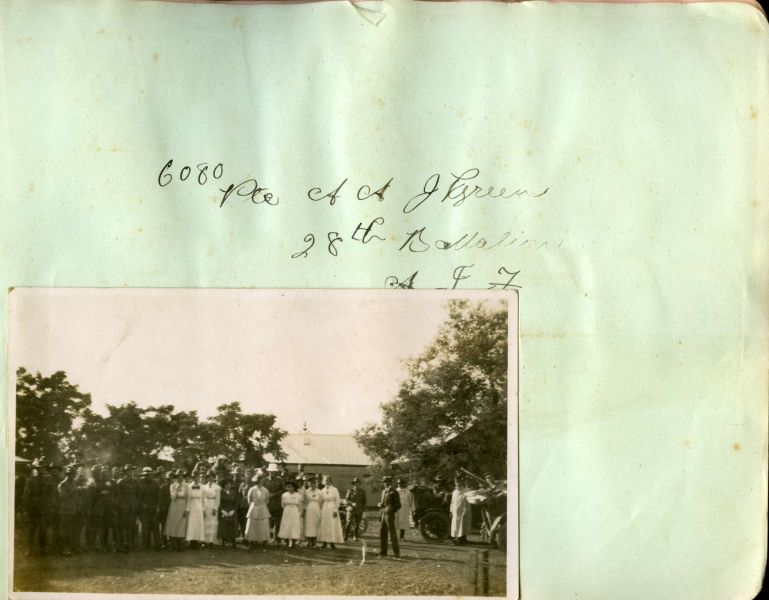 6080 Pte A A J Green
28th Battalion
A I F